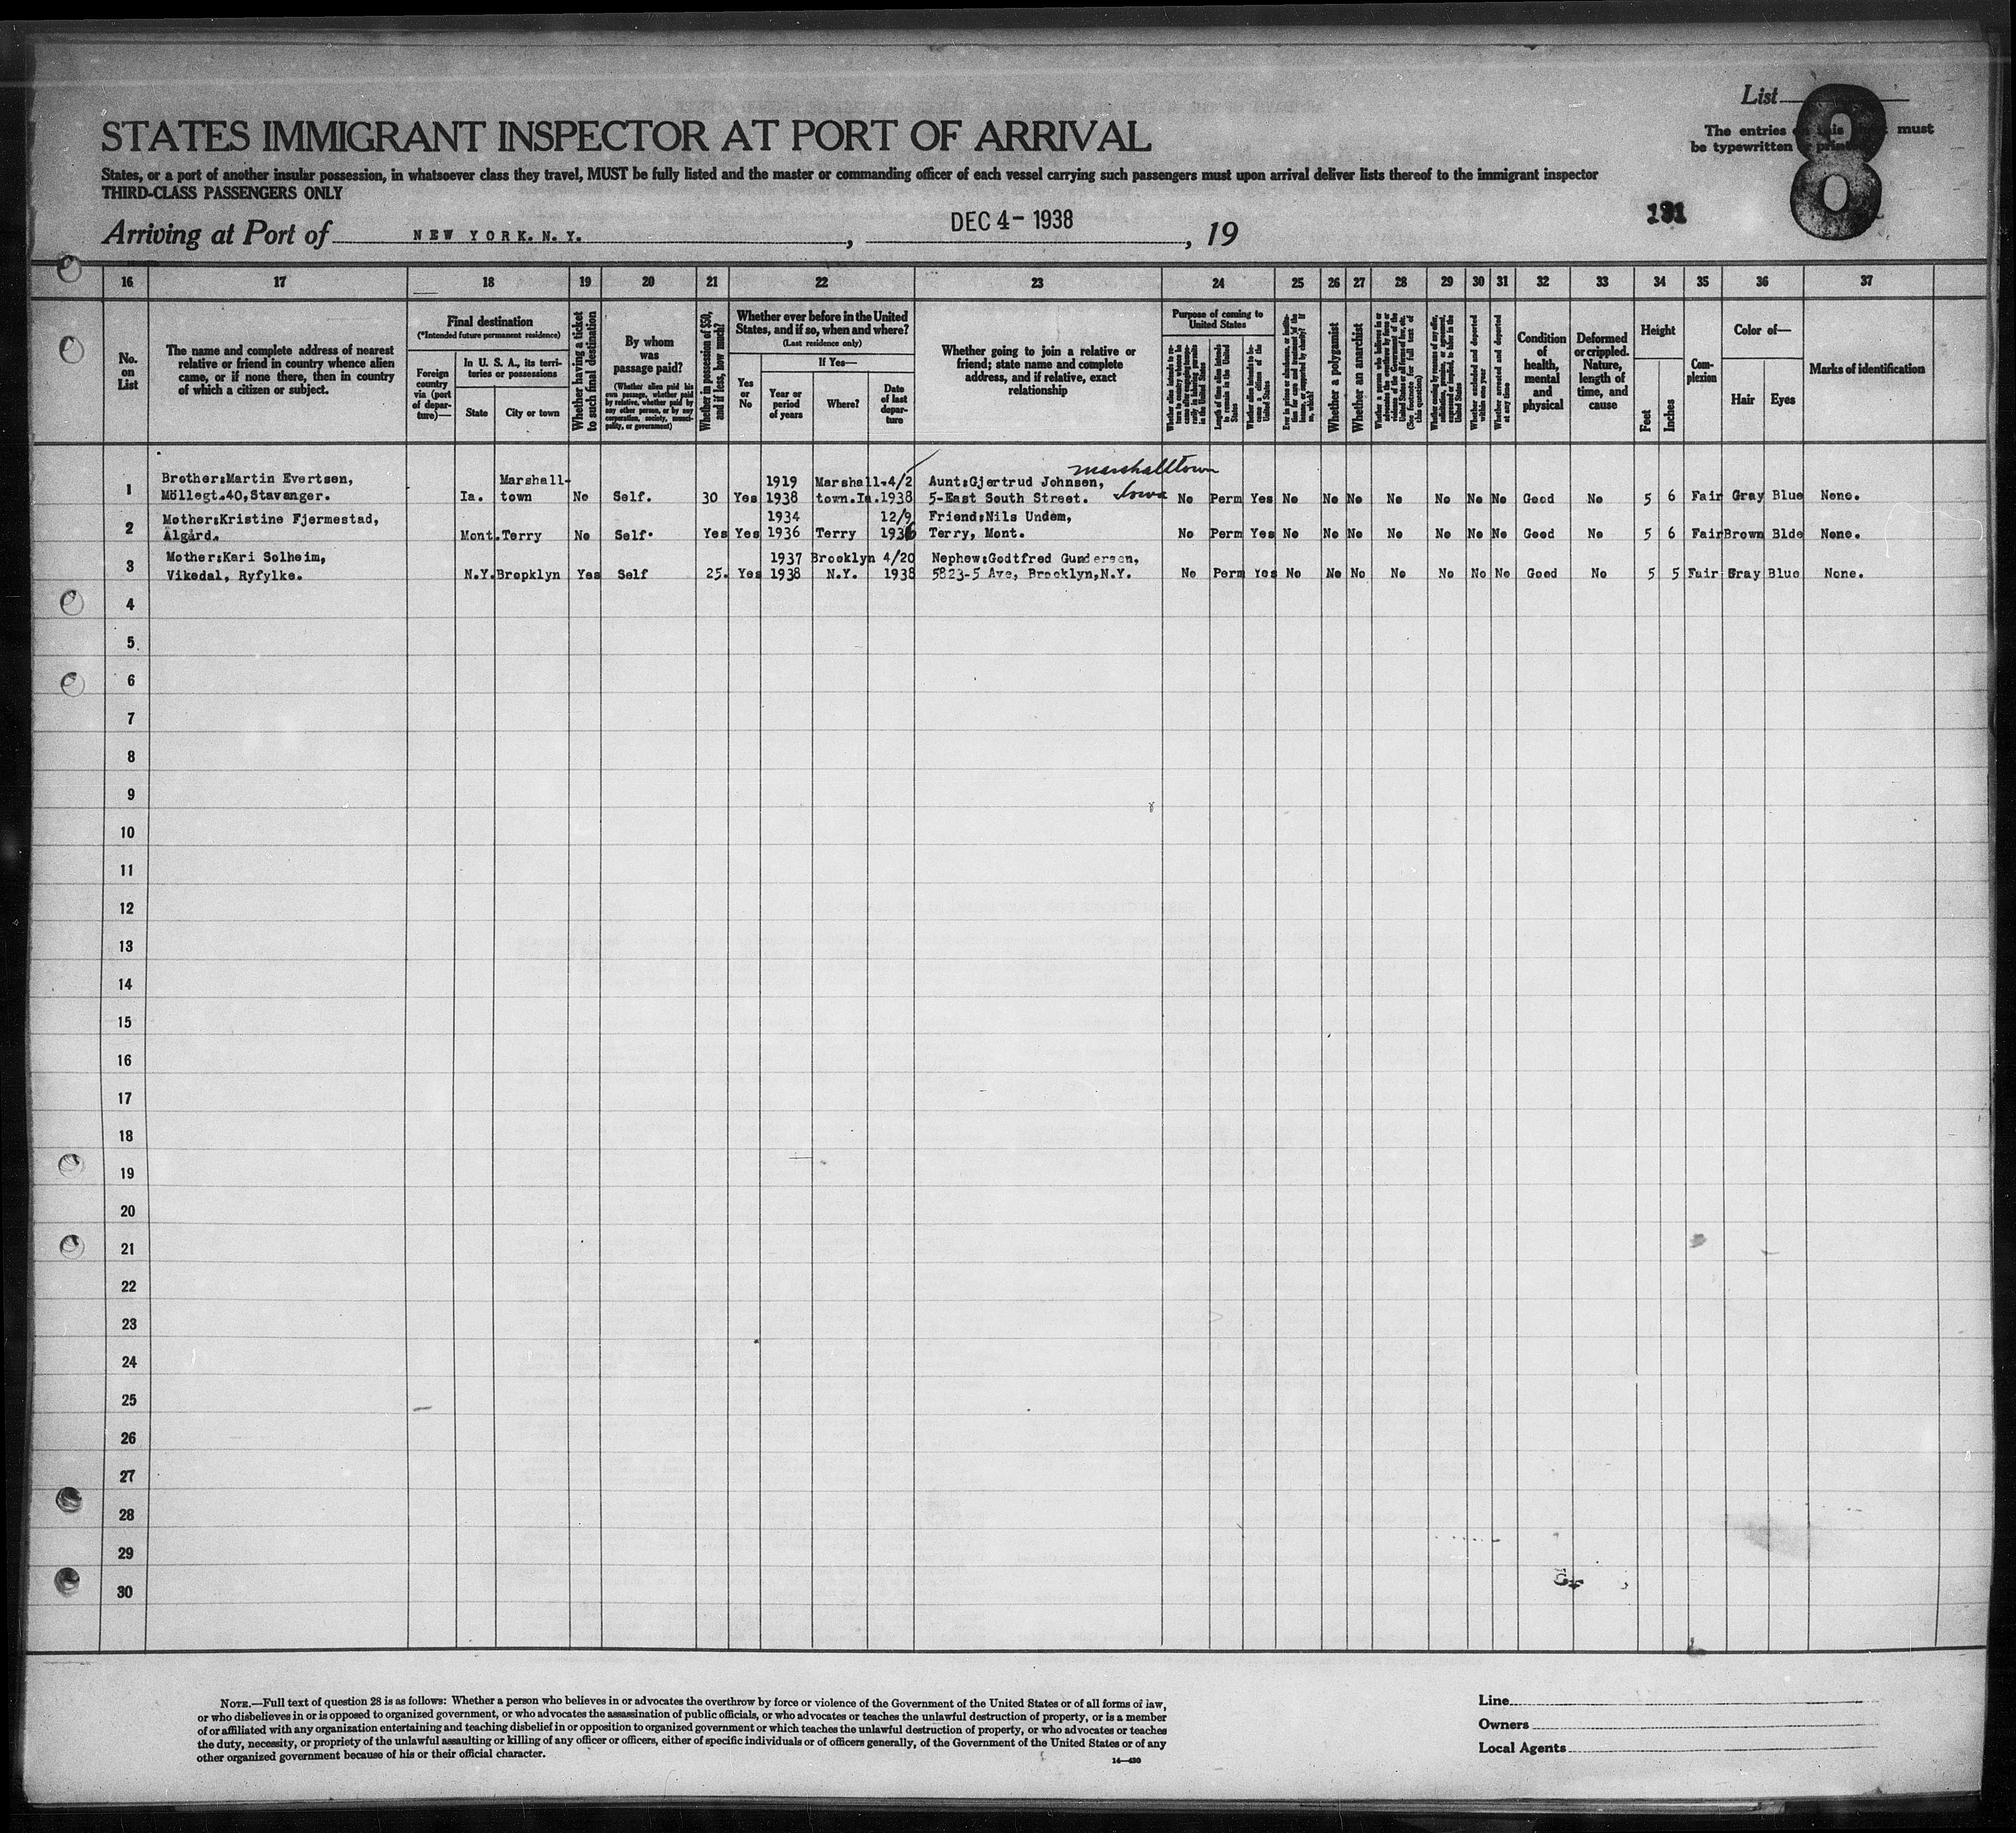 List
8
The entries on this must
be typewritten or printed
STATES IMMIGRANT INSPECTOR AT PORT OF ARRIVAL
States, or a port of another insular possession, in whatsoever class they travel, MUST be fully listed and the master or commanding officer of each vessel carrying such passengers must upon arrival deliver lists thereof to the immigrant inspector
THIRD-CLASS PASSENGERS ONLY
131
Arriving at Port of NEW YORK. N. Y. , DEC 4 - 1938 , 19
16 17 18 19 20 21 22 23 24 25 26 27 28 29 30 31 32 33 34 35 36 37
No. on List
The name and complete address of nearest
relative or friend in country whence alien
came, or if none there, then in country
of which a citizen or subject.
Final destination
(*Intended future permanent residence)
Foreign country via (port of departure)—
In U. S. A., its territories or possessions
State
City or town
Whether having a ticket to such final destination
By whom was passage paid?
(Whether alien paid his own passage, whether paid by relative, whether paid by any other person, or by any corporation, society, municipality, or government)
Whether in possession of $50, and if less, how much?
Whether ever before in the United
States, and if so, when and where?
(Last residence only)
Yes or No
If Yes—
Year or period of years
Where?
Date of last departure
Whether going to join a relative or
friend; state name and complete
address, and if relative, exact
relationship
Purpose of coming to
United States
Length of time alien intends to remain in the United States
Whether alien intends to become a citizen of the United States
Whether a polygamist
Whether an anarchist
(See footnote for full text of this question)
Whether arrested and deported at any time
Condition of health, mental and physical
Deformed or crippled. Nature, length of time, and cause
Height
Feet
Inches
Complexion
Color of—
Hair
Eyes
Marks of identification
Brother:Martin Evertsen, Marshall- 1919 Marshall- 4/2 Aunt:Gjertrud Johnsen, Marshalltown
1 Möllegt.40,Stavanger. Ia. town No Self. 30 Yes 1938 town.Ia. 1938 5-East South Street. Iowa No Perm Yes No No No No No No No Good No 5 6 Fair Gray Blue None.
Mother:Kristine Fjermestad, 1934 12/9 Friend:Nils Undem,
2 Ålgård. Mont. Terry No Self. Yes Yes 1936 Terry 1936 Terry, Mont. No Perm Yes No No No No No No No Good No 5 6 Fair Brown Blde None.
Mother:Kari Solheim, 1937 Brooklyn 4/20 Nephew:Godtfred Gundersen,
3 Vikedal, Ryfylke. N.Y. Bropklyn Yes Self 25. Yes 1938 N.Y. 1938 5823-5 Ave, Brooklyn,N.Y. No Perm Yes No No No No No No No Good No 5 5 Fair Gray Blue None.
4
5
6
7
8
9
10
11
12
13
14
15
16
17
18
19
20
21
22
23
24
25
26
27
28
29
30
NOTE.—Full text of question 28 is as follows: Whether a person who believes in or advocates the overthrow by force or violence of the Government of the United States or of all forms of law,
or who disbelieves in or is opposed to organized government, or who advocates the assassination of public officials, or who advocates or teaches the unlawful destruction of property, or is a member
of or affiliated with any organization entertaining and teaching disbelief in or opposition to organized government or which teaches the unlawful destruction of property, or who advocates or teaches
the duty, necessity, or propriety of the unlawful assaulting or killing of any officer or officers, either of specific individuals or of officers generally, of the Government of the United States or of any
other organized government because of his or their official character.
14—430
Line
Owners
Local Agents